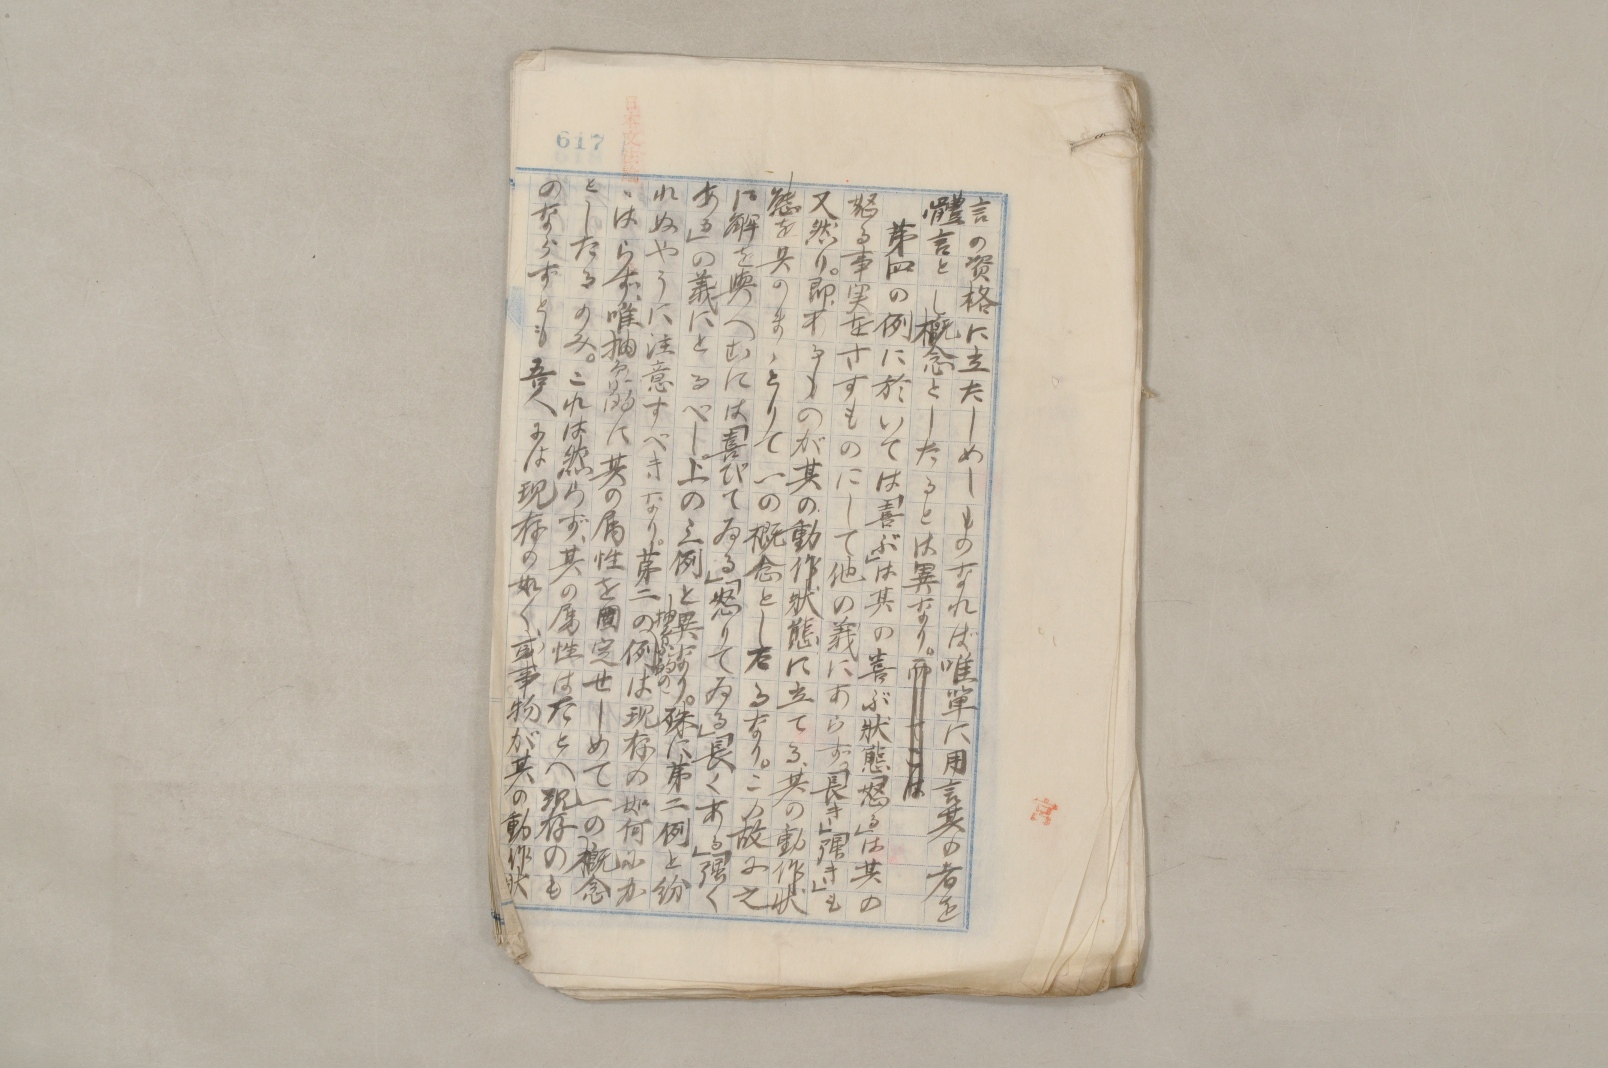 617
言の資格に立たしめしものなれば唯單に用言其の者を
體言とし概念としたるとは異なり。
第四の例に於いては「喜ぶ」は其の喜ぶ状態「怒る」は其の
怒る事実をさすものにして他の義にあらず。「長き」「強き」も
又然り。即するものが其の動作状態に立てる、其の動作状
態を其のまゝとりて一の概念としたるなり。この故に之
に解を與へむには「喜びてゐる」「怒りてゐる」「長くある」「強く
ある」の義にとるべし。上の三例と異なり。殊に第二例と紛
れぬやうに注意すべきなり。第二の抽象的の例は現存の如何にか
ゝはらず、唯抽象的に其の属性を固定せしめて一の概念
としたるのみ。これは然らず、其の属性はたとへ現存のも
のならずとも吾人には現存の如く、或事物が其の動作状
宮